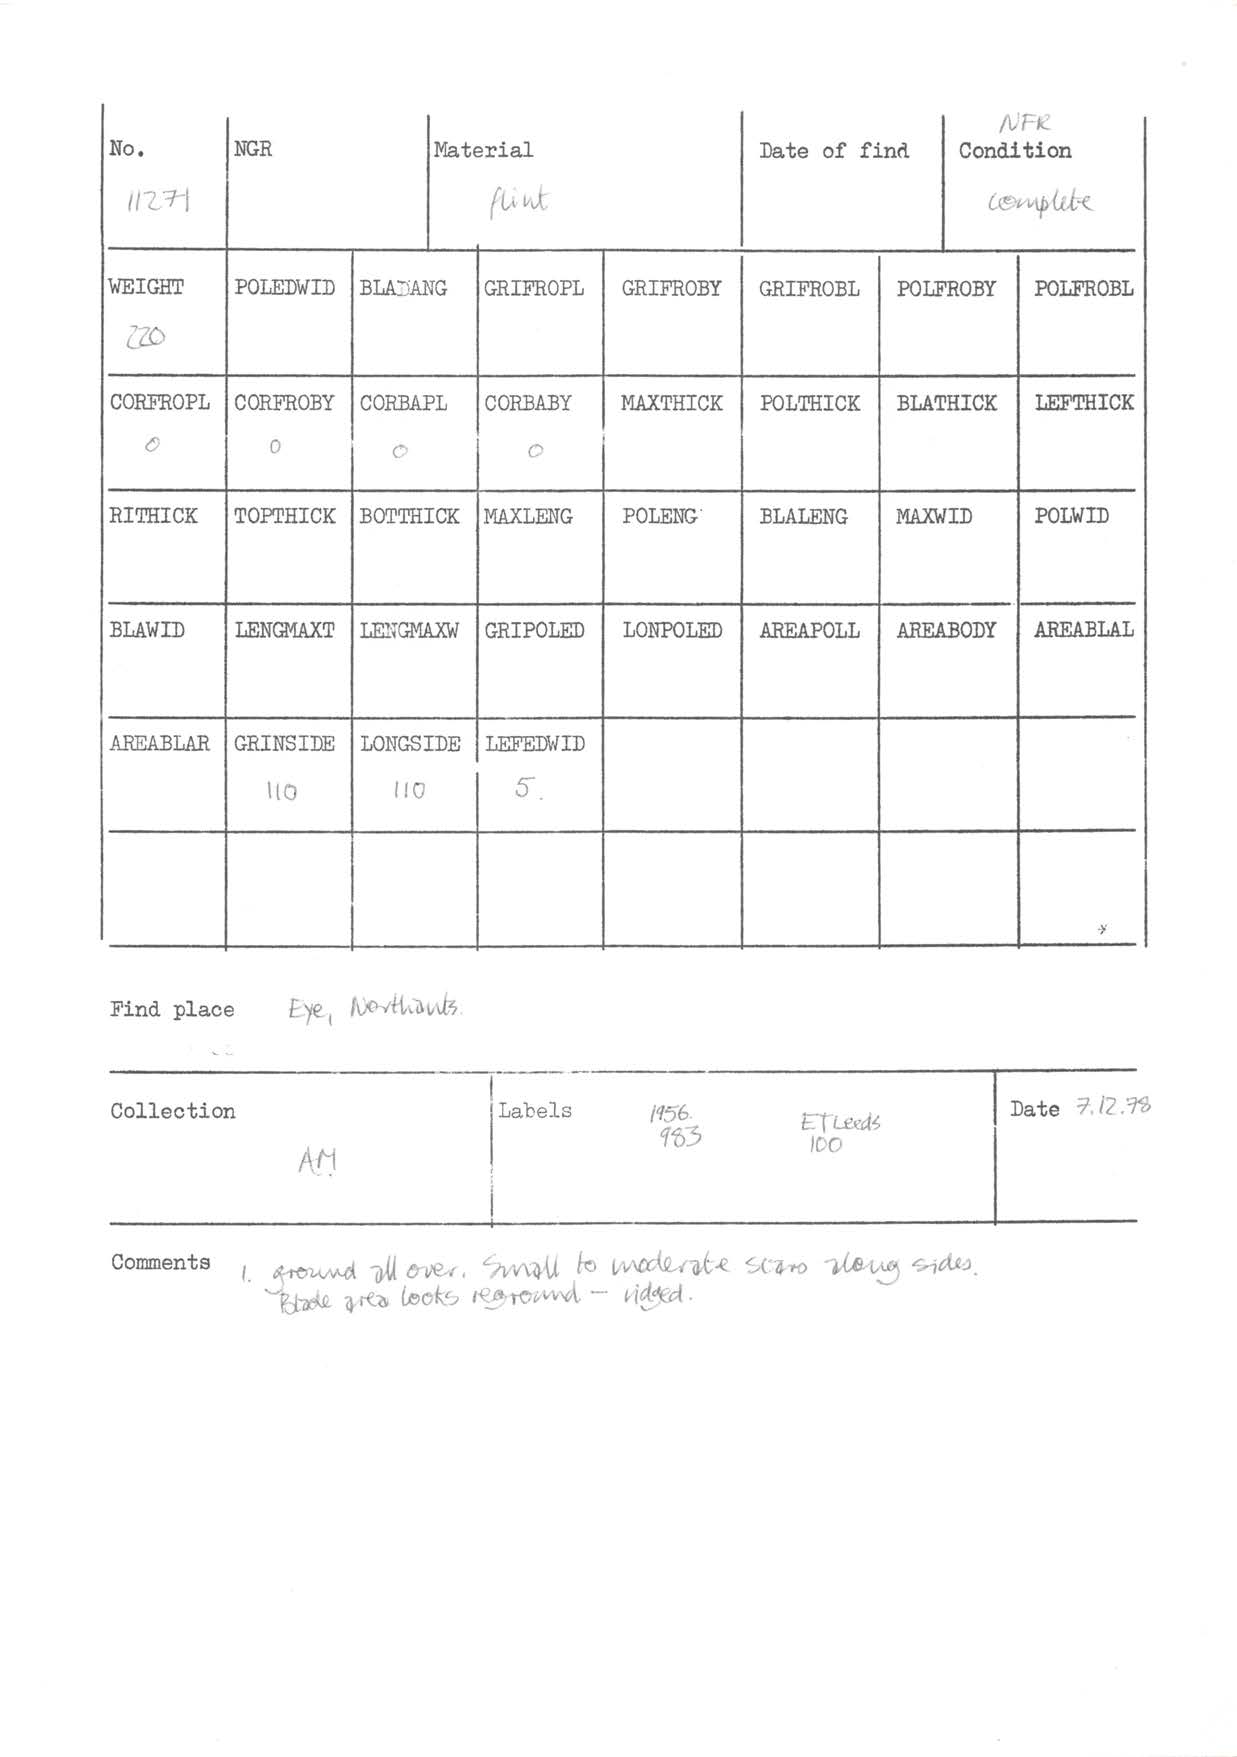 NFR
No. NGR Material Date of find Condition
11271 flint complete
WEIGHT POLEDWID BLADANG GRIFROPL GRIFROBY GRIFROBL POLFROBY POLFROBL
220
CORFROPL CORFROBY CORBAPL CORBABY MAXTHICK POLTHICK BLATHICK LEFTHICK
0 0 0 0
RITHICK TOPTHICK BOTTHICK MAXLENG POLENG BLALENG MAXWID POLWID
BLAWID LENGMAXT LENGMAXW GRIPOLED LONPOLED AREAPOLL AREABODY AREABLAL
AREABLAR GRINSIDE LONGSIDE LEFEDWID
110 110 5.
Find place Eye, Northants.
Collection Labels 1956. ET Leeds Date 7.12.78
983 100
AM
Comments 1. ground all over. Small to moderate scars along sides.
Blade area looks reground — ridged.